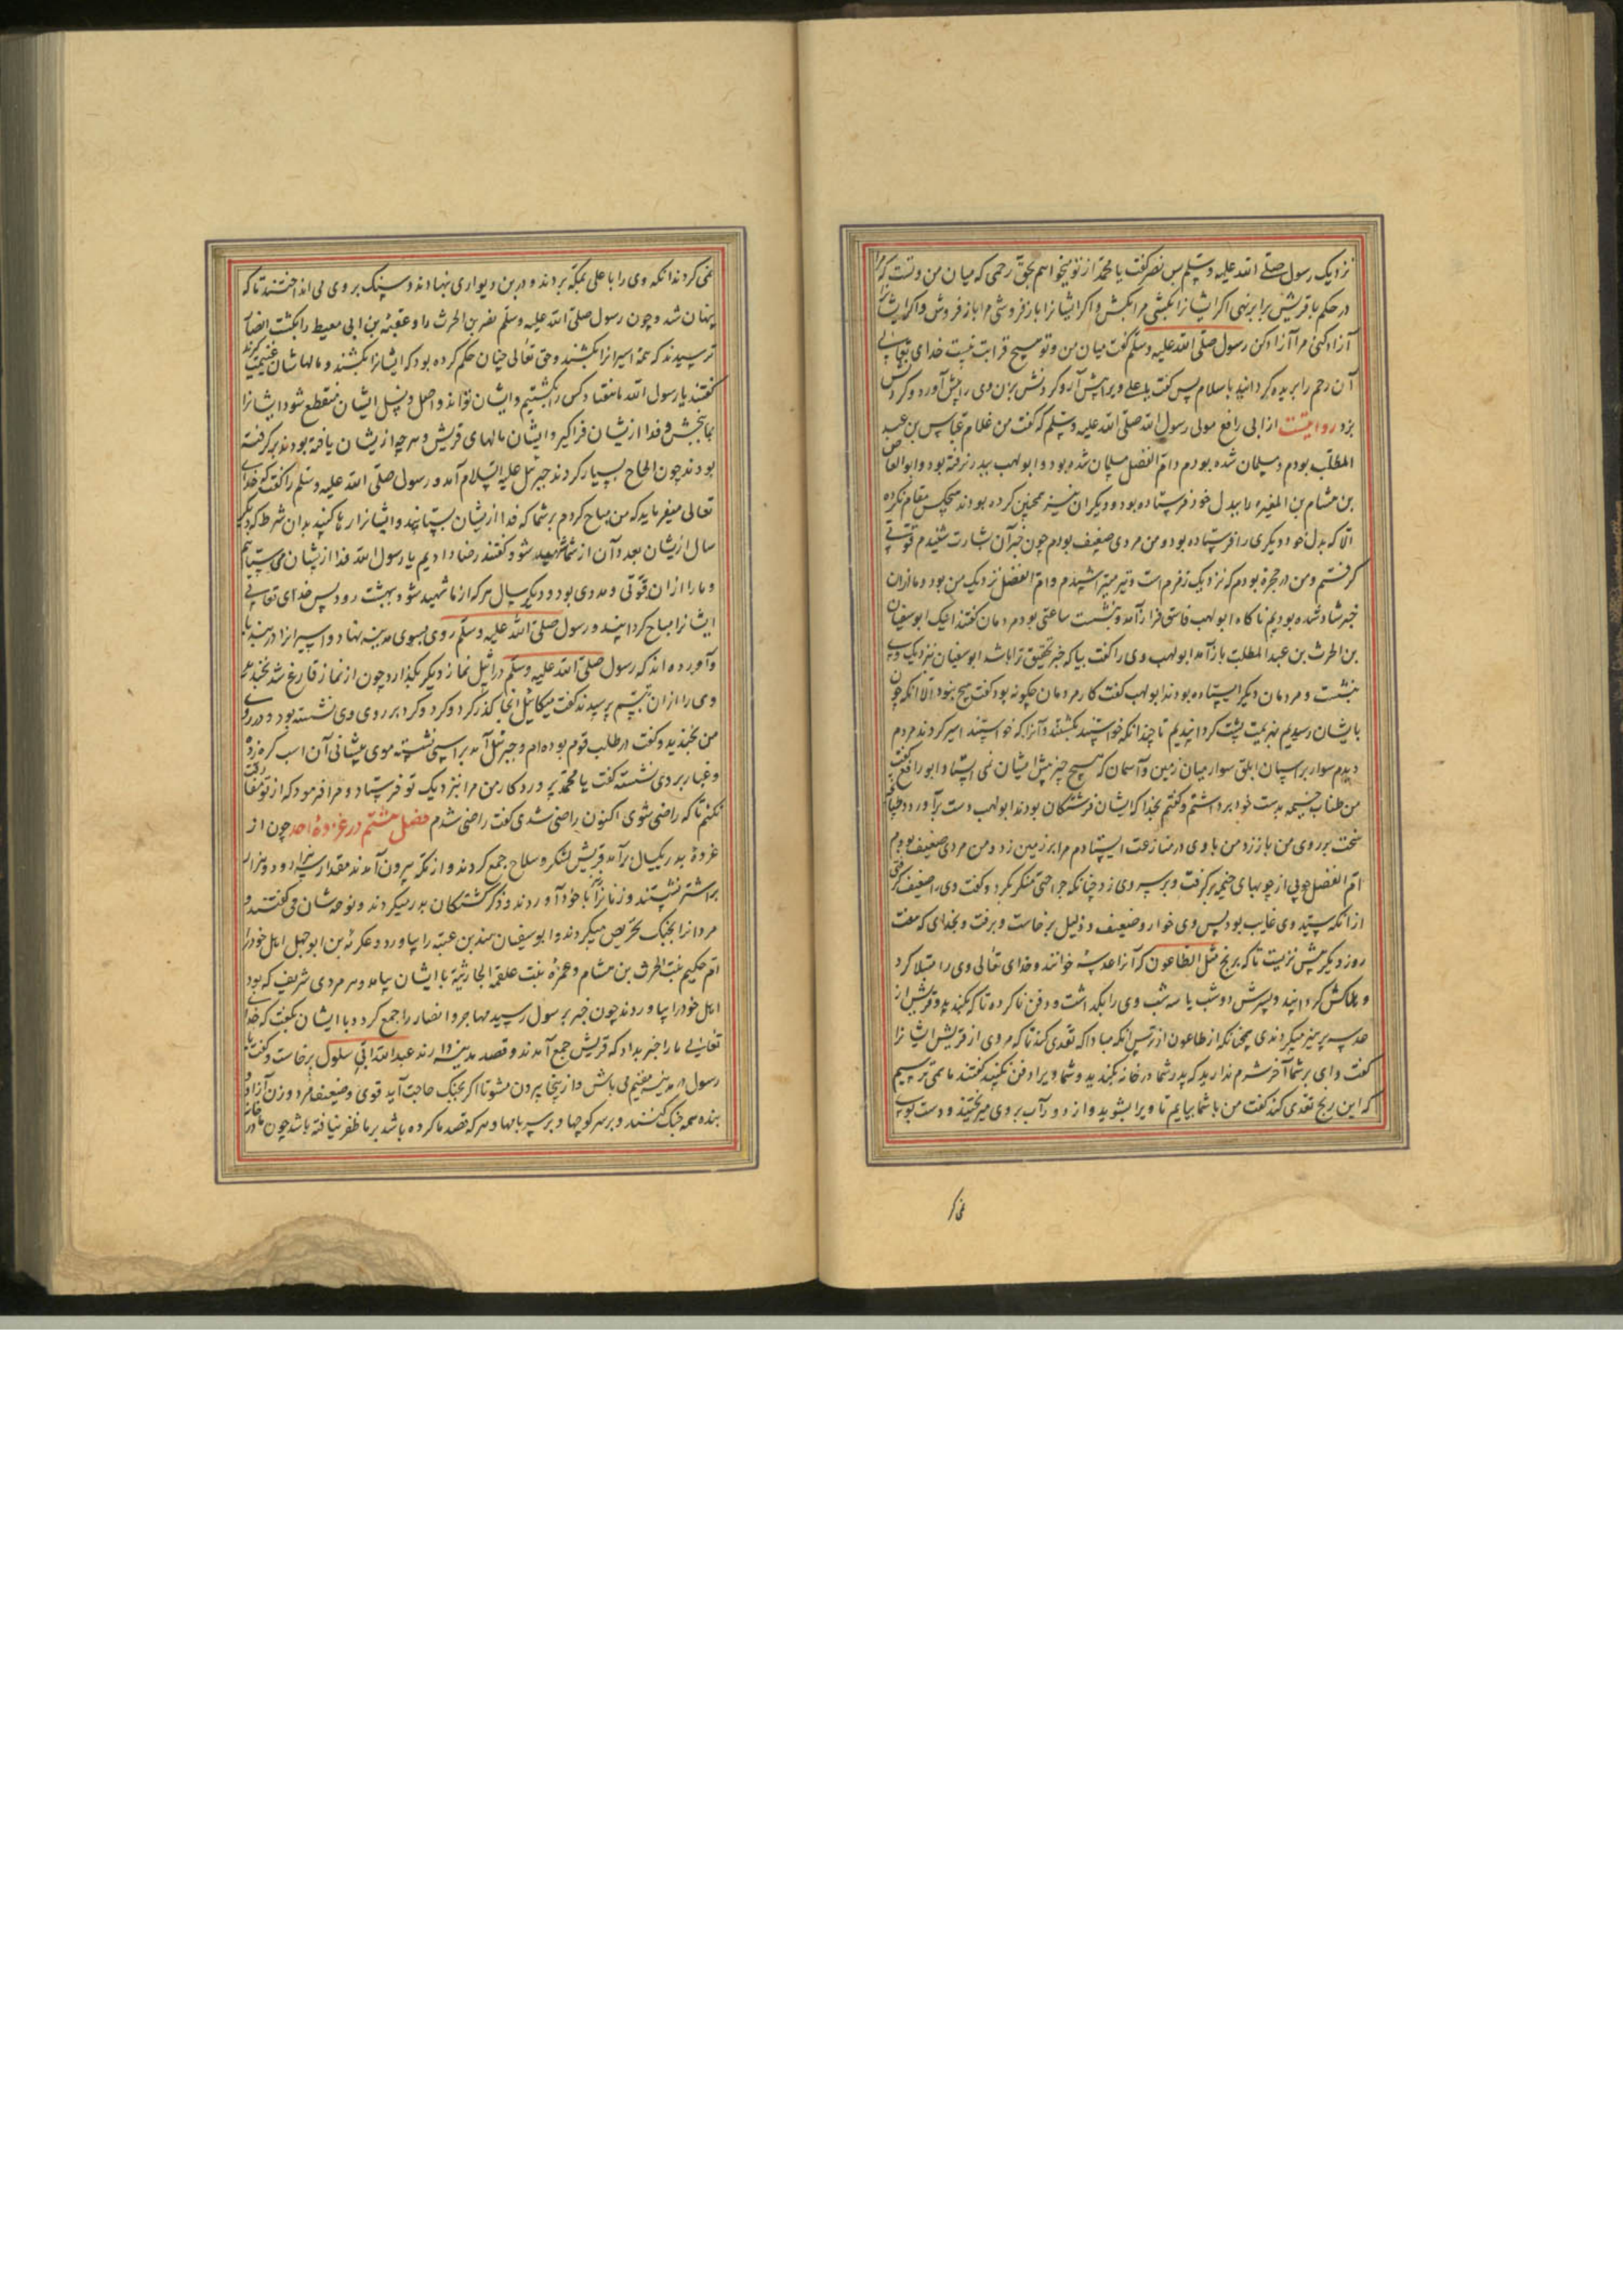 نزدیک رسول صلی الله علیه وسلم پس نضر گفت یا محمد از تو میخواهم بحق رحمی که میان من و تست که مرا
در حکم با قریش برابر نهی اگر ایشانرا بکشی مرا بکش و اگر ایشانرا باز فروشی مرا باز فروش و اگر ایشانرا
آزاد کنی مرا آزاد کن رسول صلی الله علیه وسلم گفت میان من و تو هیچ قرابت نیست خدای تعالی
آن رحم را بریده گردانید باسلام پس گفت یا علی ویرا پیش آر و گردنش بزن وی را پیش آورد و گردنش
بزد روایتست از ابی رافع مولی رسول الله صلی الله علیه وسلم که گفت من غلام عباس بن عبد
المطلب بودم و مسلمان شده بودم و ام الفضل مسلمان شده بود و ابولهب ببدر نرفته بود و ابوالعاص
بن هشام بن المغیره را ببدل خود فرستاده بود و دیگران نیز همچنین کرده بودند هیچکس مقام نکرده
الا که بدل خود دیگری را فرستاده بود و من مردی ضعیف بودم چون خبر آن بشارت شنیدم قوتی
گرفتم و من در حجره بودم که نزدیک زمزم است و تیر میتراشیدم و ام الفضل نزدیک من بود و ما از ان
خبر شاد شده بودیم ناگاه ابولهب فاسق فراز آمد و بنشست ساعتی بود مردمان گفتند اینک ابوسفیان
بن الحرث بن عبد المطلب باز آمد ابولهب وی را گفت بیا که خبر تحقیق ترا باشد ابوسفیان نزدیک وی
بنشست و مردمان دیگر ایستاده بودند ابولهب گفت کار مردمان چگونه بود گفت هیچ نبود الا انکه چون
بایشان رسیدیم هزیمت پشت گردانیدیم تا چندانکه خواستند بکشتند و آنرا که خواستند اسیر کردند مردم
دیدم سوار بر اسپان ابلق سوار میان زمین و آسمان که هیچ چیز پیش ایشان نمی ایستاد ابو رافع گفت
من طناب خیمه بدست خود برداشتم و گفتم بخدا که ایشان فرشتگان بودند ابولهب دست برآورد و طپانچه
سخت بر روی من باز زد من با وی در منازعت ایستادم مرا بر زمین زد و من مردی ضعیف بودم
ام الفضل چوبی از چوبهای خیمه برگرفت و بر سر وی زد چنانکه جراحتی منکر بکرد و گفت وی را ضعیف گرفتی
از انکه سید وی غایب بود پس وی خوار و ضعیف و ذلیل برخاست و برفت و بخدای که هفت
روز دیگر بیش نزیست تا که برنج مثل الطاعون که آنرا عدسه خوانند و خدای تعالی وی را مبتلا کرد
و هلاکش گردانید و پسرش دو شب یا سه شب وی را بگذاشت و دفن ناکرده تا که بگندید و قریش از
عدسه پرهیز میکردندی همچنانکه از طاعون از ترس انکه مبادا که تعدی کند تا که مردی از قریش ایشانرا
گفت وای بر شما آخر شرم ندارید که پدر شما در خانه بگندید و شما ویرا دفن نکنید گفتند ما می ترسیم
که این رنج تعدی کند گفت من با شما بیایم تا ویرا بشوید و از دور آب بر وی میریختند و دست بوی
نمی کر
نمی کردند انکه وی را با علی مکه بردند و در بن دیواری بنهادند و سنگ بر وی می انداختند تا که
پنهان شد و چون رسول صلی الله علیه وسلم نضر بن الحرث را و عقبة بن ابی معیط را بکشت انصار
ترسیدند که همه اسیرانرا بکشند و حق تعالی چنان حکم کرده بود که ایشانرا بکشند و مالهاشان غنیمت گیرند
گفتند یا رسول الله ما هفتاد کس را بکشتیم و ایشان تواند و اصل و نسل ایشان منقطع شود ایشانرا
بما بخش و فدا از یشان فرا گیر و ایشان مالهای قریش و هر چه از یشان یافته بودند برگرفته
بودند چون الحاح بسیار کردند جبرئیل علیه السلام آمد و رسول صلی الله علیه وسلم را گفت که خدای
تعالی میفرماید که من مباح کردم بر شما که فدا از یشان بستانید و ایشانرا رها کنید بدان شرط که دیگر
سال از یشان بعدد آن از شما شهید شود گفتند رضا دادیم یا رسول الله فدا از یشان می ستانیم
و ما را از ان قوتی و مددی بود و دیگر سال هر که از ما شهید شود ببهشت رود پس خدای تعالی
ایشانرا مباح گردانید و رسول صلی الله علیه وسلم روی بسوی مدینه نهاد و اسیرانرا در بند
و آورده اند که رسول صلی الله علیه وسلم در اثیل نماز دیگر بگذارد چون از نماز فارغ شد بخندید
وی را از ان تبسم پرسیدند گفت میکائیل اینجا گذر کرد و گرد بر روی وی نشسته بود و در روی
من بخندید و گفت در طلب قوم بوده ام و جبرئیل آمد بر اسپی نشسته موی پیشانی آن اسب گره زده
و غبار بر وی نشسته گفت یا محمد پروردگار من مرا بنزدیک تو فرستاد و مرا فرمود که از تو مفارقت
نکنم تا که راضی شوی اکنون راضی شدی گفت راضی شدم فصل هشتم در غزوۀ احد چون از
غزوۀ بدر یکسال برآمد قریش لشکر و سلاح جمع کردند و از مکه بیرون آمدند مقدار سه هزار مرد و هزار
بر اشتر نشستند و زنانرا با خود آوردند و ذکر کشتگان بدر میکردند و نوحه شان می گفتند و
مردانرا بجنگ تحریص میکردند و ابوسفیان هند بن عتبه را بیاورد و عکرمة بن ابوجهل اهل خود را
ام حکیم بنت الحرث بن هشام و عمرة بنت علقمة الحارثیة با ایشان بیامد و هر مردی شریف که بود
اهل خود را بیاوردند چون خبر برسول رسید مهاجر و انصار را جمع کرد و با ایشان بگفت که خدای
تعالی ما را خبر بداد که قریش جمع آمدند و قصد مدینه دارند عبد الله ابی سلول برخاست و گفت یا
رسول در مدینه مقیم می باش و از ینجا بیرون مشو تا اگر بجنگ حاجت آید قوی و ضعیف مرد و زن آزاد و
بنده همه جنگ کنند و بر سر کوچها و بر سر بامها و هر که قصد ما کرده باشد بر ما ظفر نیافته باشد چون ما در خانه